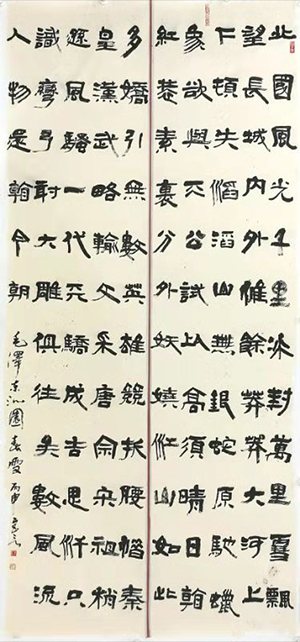 北國風光千里冰封萬里雪飄
望長城内外惟餘莽莽大河上
下頓失滔滔山舞銀蛇原馳蠟
象欲與天公試比高須晴日看
紅裝素裹分外妖嬈江山如此
多嬌引無數英雄競折腰惜秦
皇漢武略輸文采唐宗宋祖稍
遜風騷一代天驕成吉思汗只
識彎弓射大雕俱往矣數風流
人物還看今朝
毛澤東沁園春雪丙申